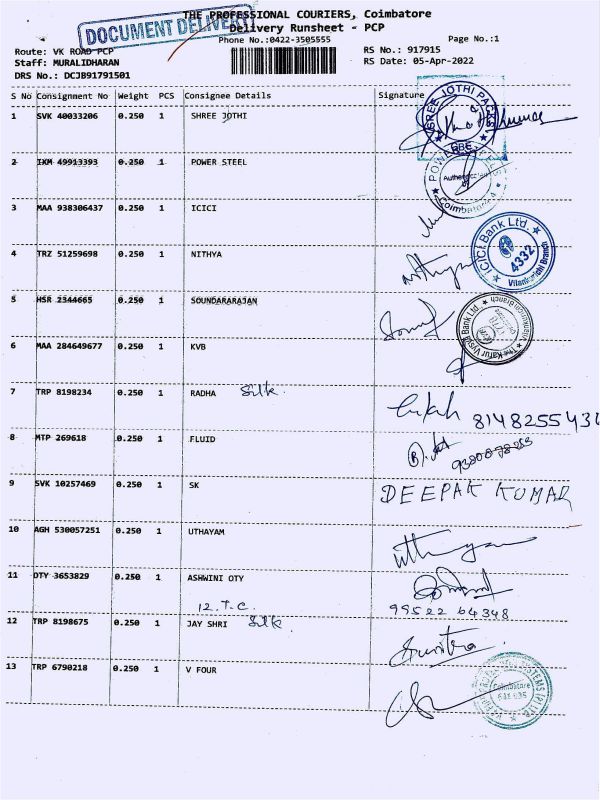 THE PROFESSIONAL COURIERS, Coimbatore
DOCUMENT DELIVERY
Delivery Runsheet - PCP
Phone No.:0422-3505555 Page No.:1
Route: VK ROAD PCP RS No.: 917915
Staff: MURALIDHARAN RS Date: 05-Apr-2022
DRS No.: DCJB91791501
S No Consignment No Weight PCS Consignee Details Signature
1 SVK 40033206 0.250 1 SHREE JOTHI
SHREE JOTHI PACKS
CBE
2 IXM 49913393 0.250 1 POWER STEEL
POWER
Coimbatore
3 MAA 938306437 0.250 1 ICICI
ICICI Bank Ltd.
4332
Vilankurichi Branch
4 TRZ 51259698 0.250 1 NITHYA
Nithya
5 HSR 2344665 0.250 1 SOUNDARARAJAN
The Karur Vysya Bank Ltd.
6 MAA 284649677 0.250 1 KVB
7 TRP 8198234 0.250 1 RADHA Silk.
814825543
8 MTP 269618 0.250 1 FLUID
9 SVK 10257469 0.250 1 SK DEEPAK KUMAR
10 AGH 530057251 0.250 1 UTHAYAM
11 OTY 3653829 0.250 1 ASHWINI OTY
12.T.C. 99522 64348
12 TRP 8198675 0.250 1 JAY SHRI Silk.
Sumithra
13 TRP 6790218 0.250 1 V FOUR
Coimbatore
641 035